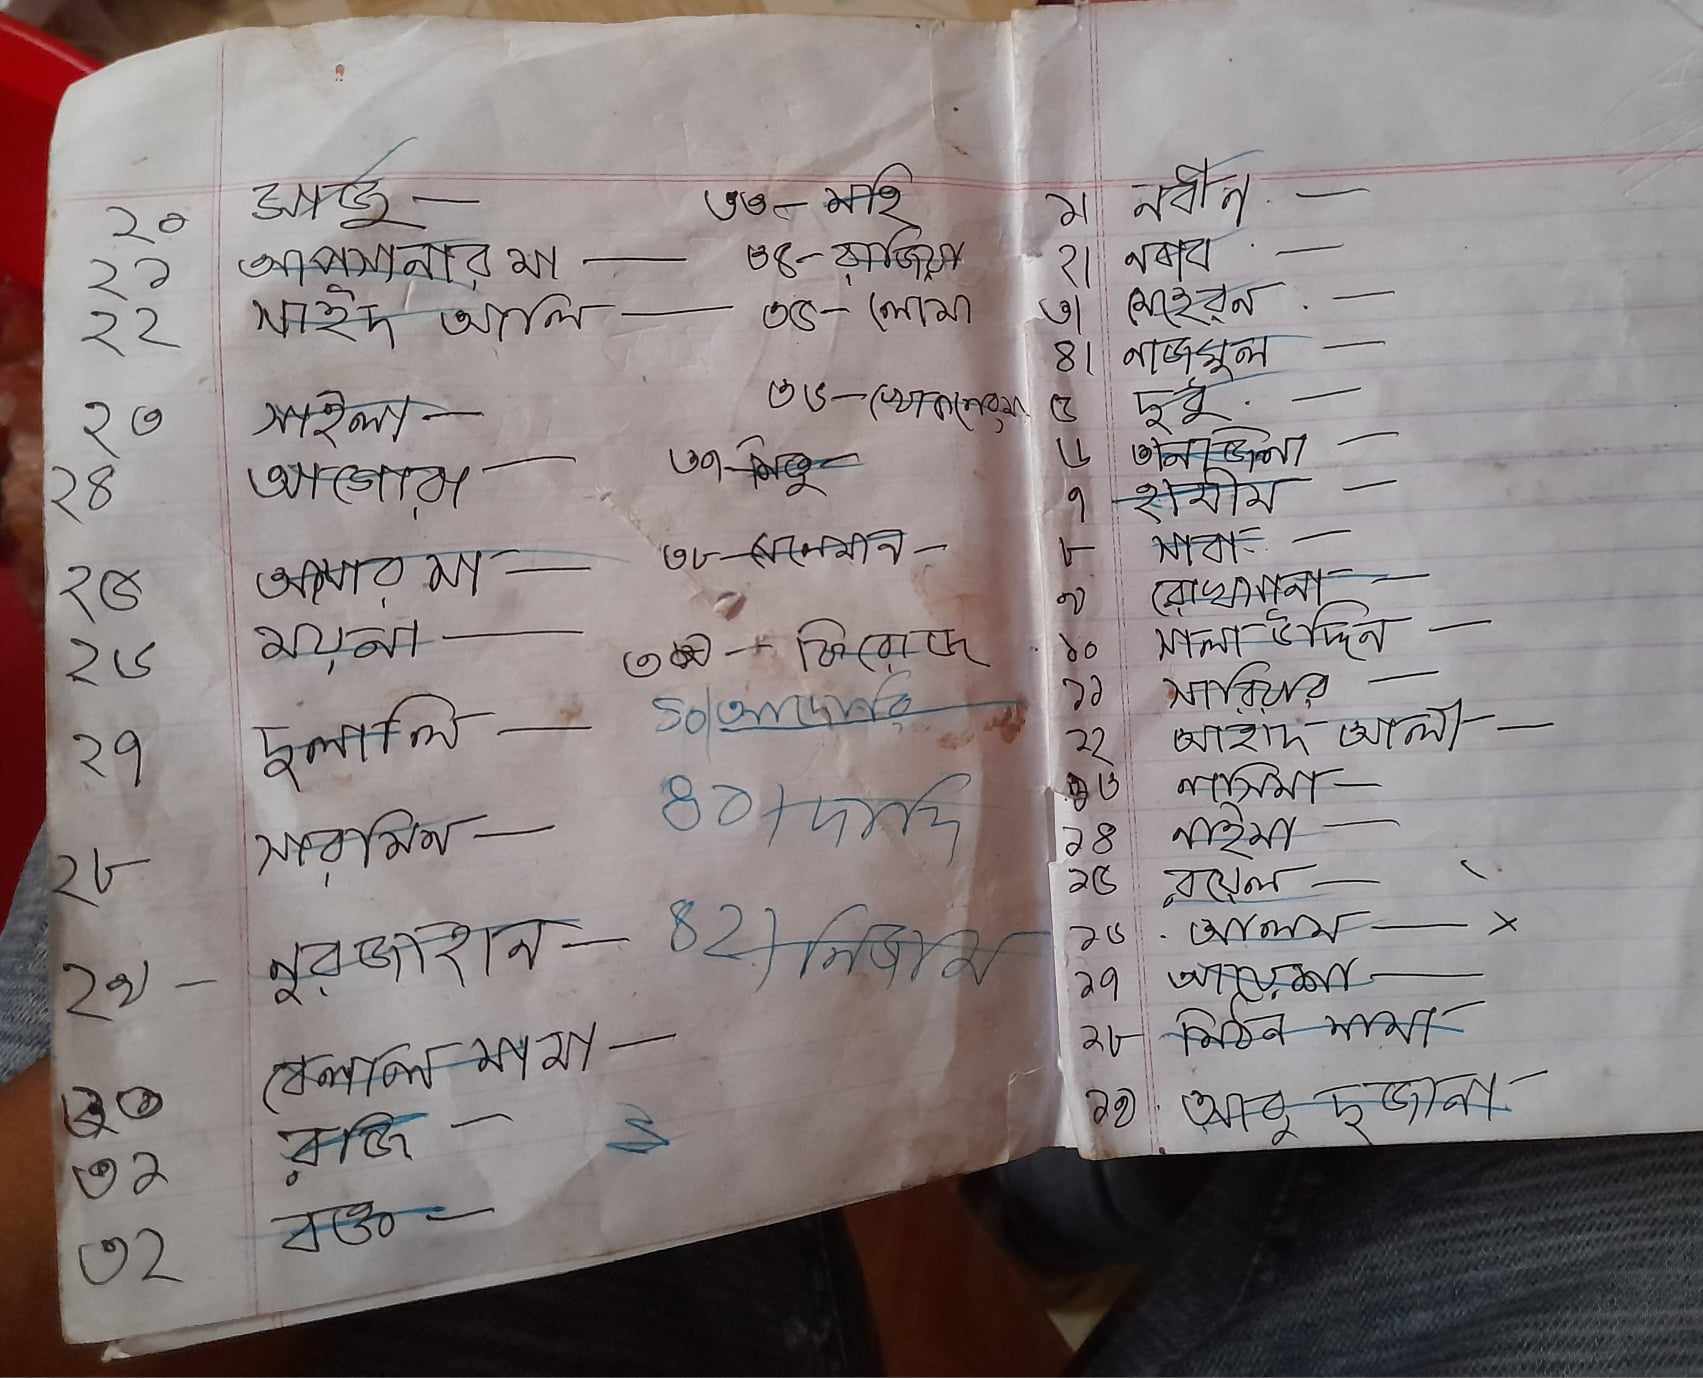 ২০ আর্জু —
২১ আপসানার মা —
২২ সাইদ আলি —
২৩ সাইলা —
২৪ আনোরা —
২৫ আশার মা —
২৬ ময়না —
২৭ দুলালি —
২৮ সারমিন —
২৯ - নুরজাহান —
৩০ বেলাল মামা —
৩১ রুজি —
৩২ —
৩৩ - মাহি
৩৪ - রাজিয়া
৩৫ - লোমা
৩৬ -
৩৭ - মিতু -
৩৮ - সলেমান -
৩৯ - ফিরোজ
৪০|
৪১) দাদি
৪২) নিজাম
১। নবীন —
২। নবাব —
৩। মেহেরন —
৪। নাজমুল —
৫ দুদু —
৬ তানজিলা —
৭ হামীম —
৮ সাবা —
৯ রোখসানা —
১০ সালা উদ্দিন —
১১ সারিয়ার —
১২ আহাদ আলী —
১৩ নাসিমা —
১৪ নাইমা —
১৫ রুয়েল —
১৬ আলম — ×
১৭ আয়েশা —
১৮ মিঠন মামা
১৯ আবু দুজানা —